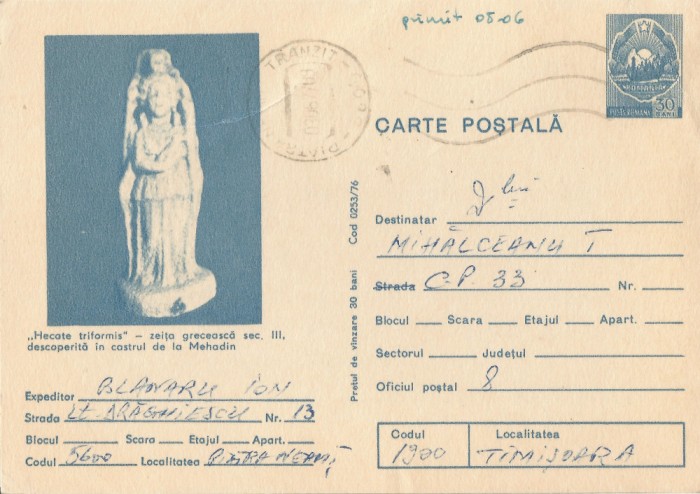 primit 08-06
TRANZIT
PIATRA
POSTA ROMANA
30
BANI
CARTE POŞTALĂ
Destinatar D-lui
MIHĂLCEANU T
Strada C.P. 33 Nr.
Blocul Scara Etajul Apart.
Sectorul Judeţul
Oficiul poştal 8
Codul Localitatea
1900 TIMIŞOARA
Cod 0253/76
Preţul de vînzare 30 bani
„Hecate triformis" – zeiţa grecească sec. III,
descoperită în castrul de la Mehadin
Expeditor ION
Strada LT. DRĂGHIESCU Nr. 13
Blocul Scara Etajul Apart.
Codul 5600 Localitatea PIATRA NEAMŢ